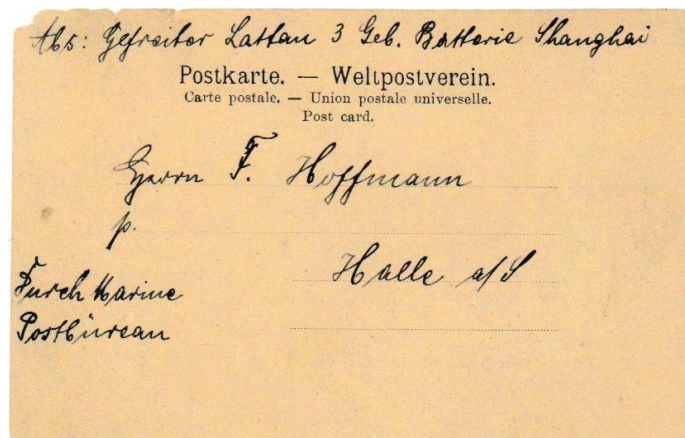 Abs: Gefreiter Lattau 3 Geb. Batterie Shanghai
Postkarte. — Weltpostverein.
Carte postale. — Union postale universelle.
Post card.
Herrn F. Hoffmann
p.
Halle a/S
Durch Marine
Postbüreau